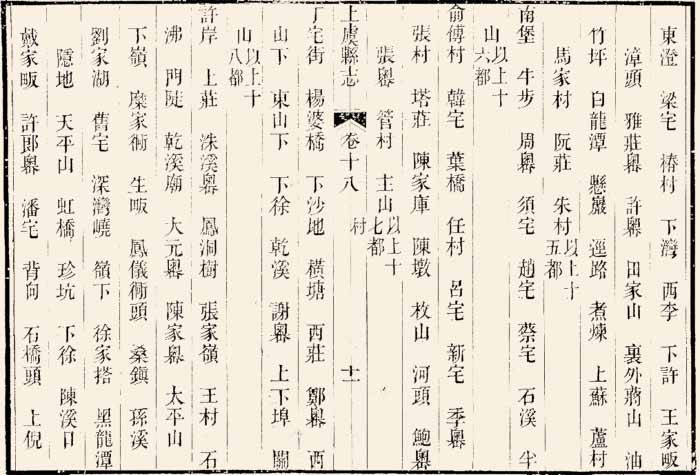 東澄 梁宅 椿村 下灣 西李 下許 王家畈
漳頭 雅莊嶴 許嶴 田家山 裏外蔣山 油
竹坪 白龍潭 懸巖 逕路 煮煉 上蘇 蘆村
馬家村 阮莊 朱村以上十五都
南堡 牛步 周嶴 須宅 趙宅 蔡宅 石溪 半
山以上十六都
俞傅村 韓宅 葉橋 任村 呂宅 新宅 季嶴
張村 塔莊 陳家庫 陳墩 枚山 河頭 鮑嶴
張嶴 管村 主山村以上十七都
上虞縣志 卷十八 十一
丁宅街 楊婆橋 下沙地 橫塘 西莊 鄭嶴 西
山下 東山下 下徐 乾溪 謝嶴 上下埠 關
山以上十八都
許岸 上莊 洙溪嶴 鳳洞樹 張家嶺 王村 石
沸 門陡 乾溪廟 大元嶴 陳家嶴 太平山
下嶺 糜家衕 生畈 鳳儀衕頭 桑鎮 孫溪
劉家湖 舊宅 深灣嶢 嶺下 徐家搭 黑龍潭
隱地 天平山 虹橋 珍坑 下徐 陳溪口
戴家畈 許郎嶴 潘宅 背向 石橋頭 上倪